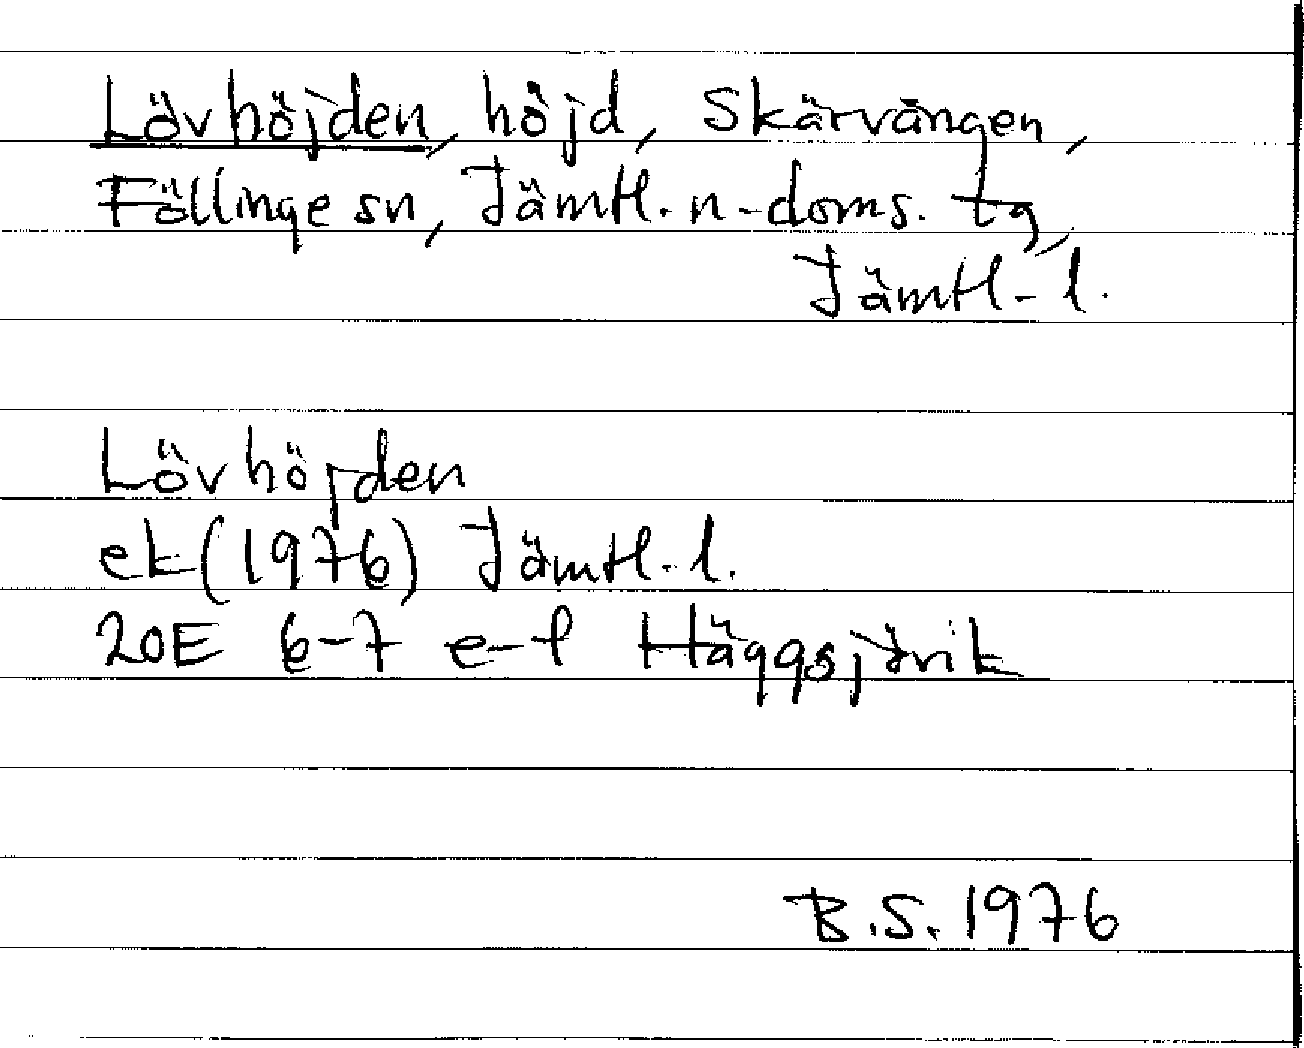 Lövhöjden, höjd, Skärvången,
Föllinge sn, Jämtl. n-doms. tg,
Jämtl-l.
Lövhöjden
ek (1976) Jämtl-l.
20E 6-7 e-f Häggsjövik
B.S. 1976